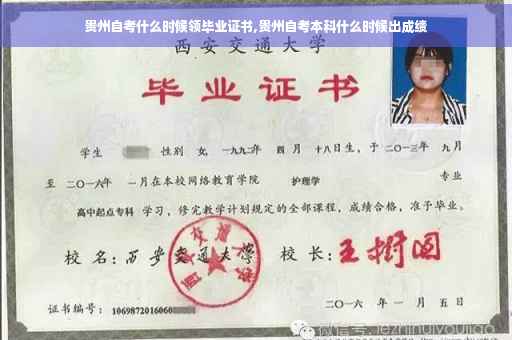 贵州自考什么时候领毕业证书,贵州自考本科什么时候出成绩
西安交通大学
毕业证书
学生 性别 女, 一九九二年 四月 十八日生, 于二〇一三年 九月
至二〇一六年 一月在本校网络教育学院 护理学 专业
高中起点专科 学习, 修完教学计划规定的全部课程, 成绩合格, 准予毕业。
校名: 西安交通大学 校长: 王树国
西安交通大学
证书编号: 1069872016060
二〇一六年一月五日
微信号: jiezhinuiyoujiao